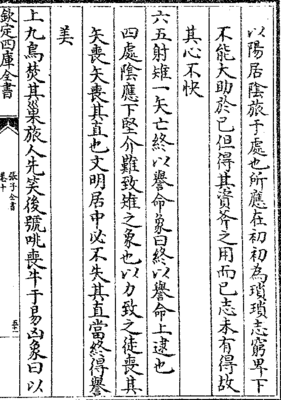 以陽居陰旅于處也所應在初初為瑣瑣志窮卑下
不能大助於已但得其資斧之用而已志未有得故
其心不快
六五射雉一矢亡終以譽命象曰終以譽命上逮也
四處陰應下堅介難致雉之象也以力致之徒喪其
矢喪矢喪其直也文明居中必不失其直當終得譽
美
上九鳥焚其巢旅人先笑後號咷喪牛于易凶象曰以
欽定四庫全書
張子全書
卷十